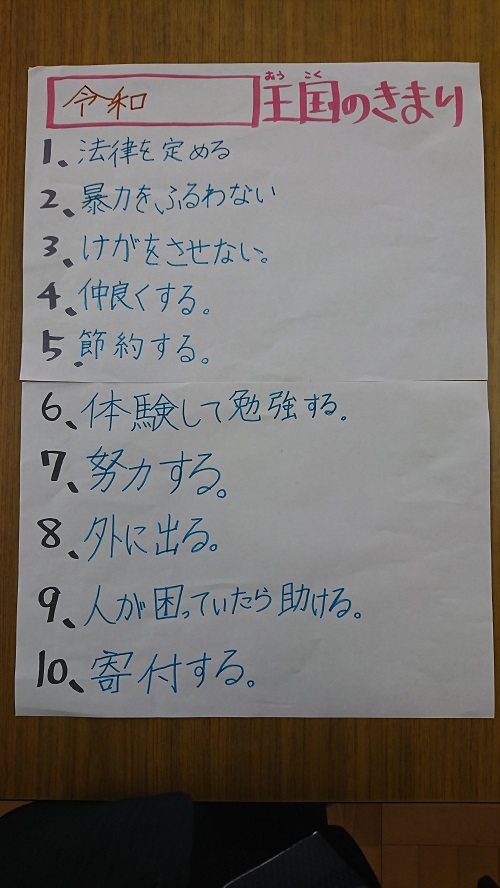 令和 王国のきまり
おう こく
1、法律を定める
2、暴力をふるわない
3、けがをさせない。
4、仲良くする。
5、節約する。
6、体験して勉強する。
7、努力する。
8、外に出る。
9、人が困っていたら助ける。
10、寄付する。